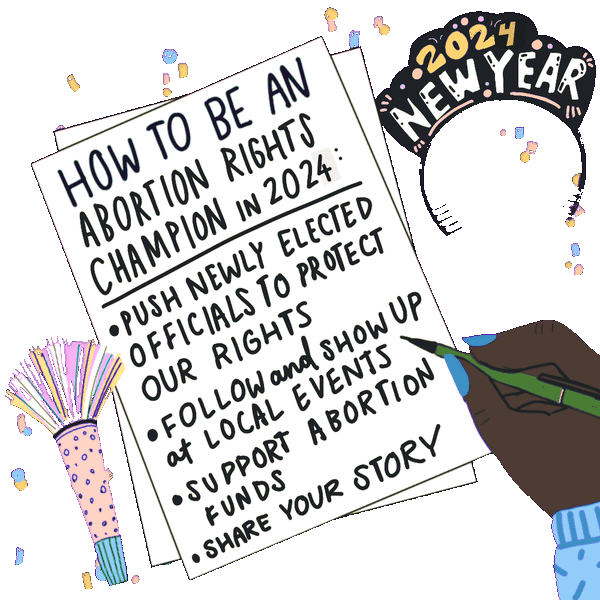 2024
NEW YEAR
HOW TO BE AN
ABORTION RIGHTS
CHAMPION IN 2024:
• PUSH NEWLY ELECTED
OFFICIALS TO PROTECT
OUR RIGHTS
• FOLLOW and SHOW UP
at LOCAL EVENTS
• SUPPORT ABORTION
FUNDS
• SHARE YOUR STORY